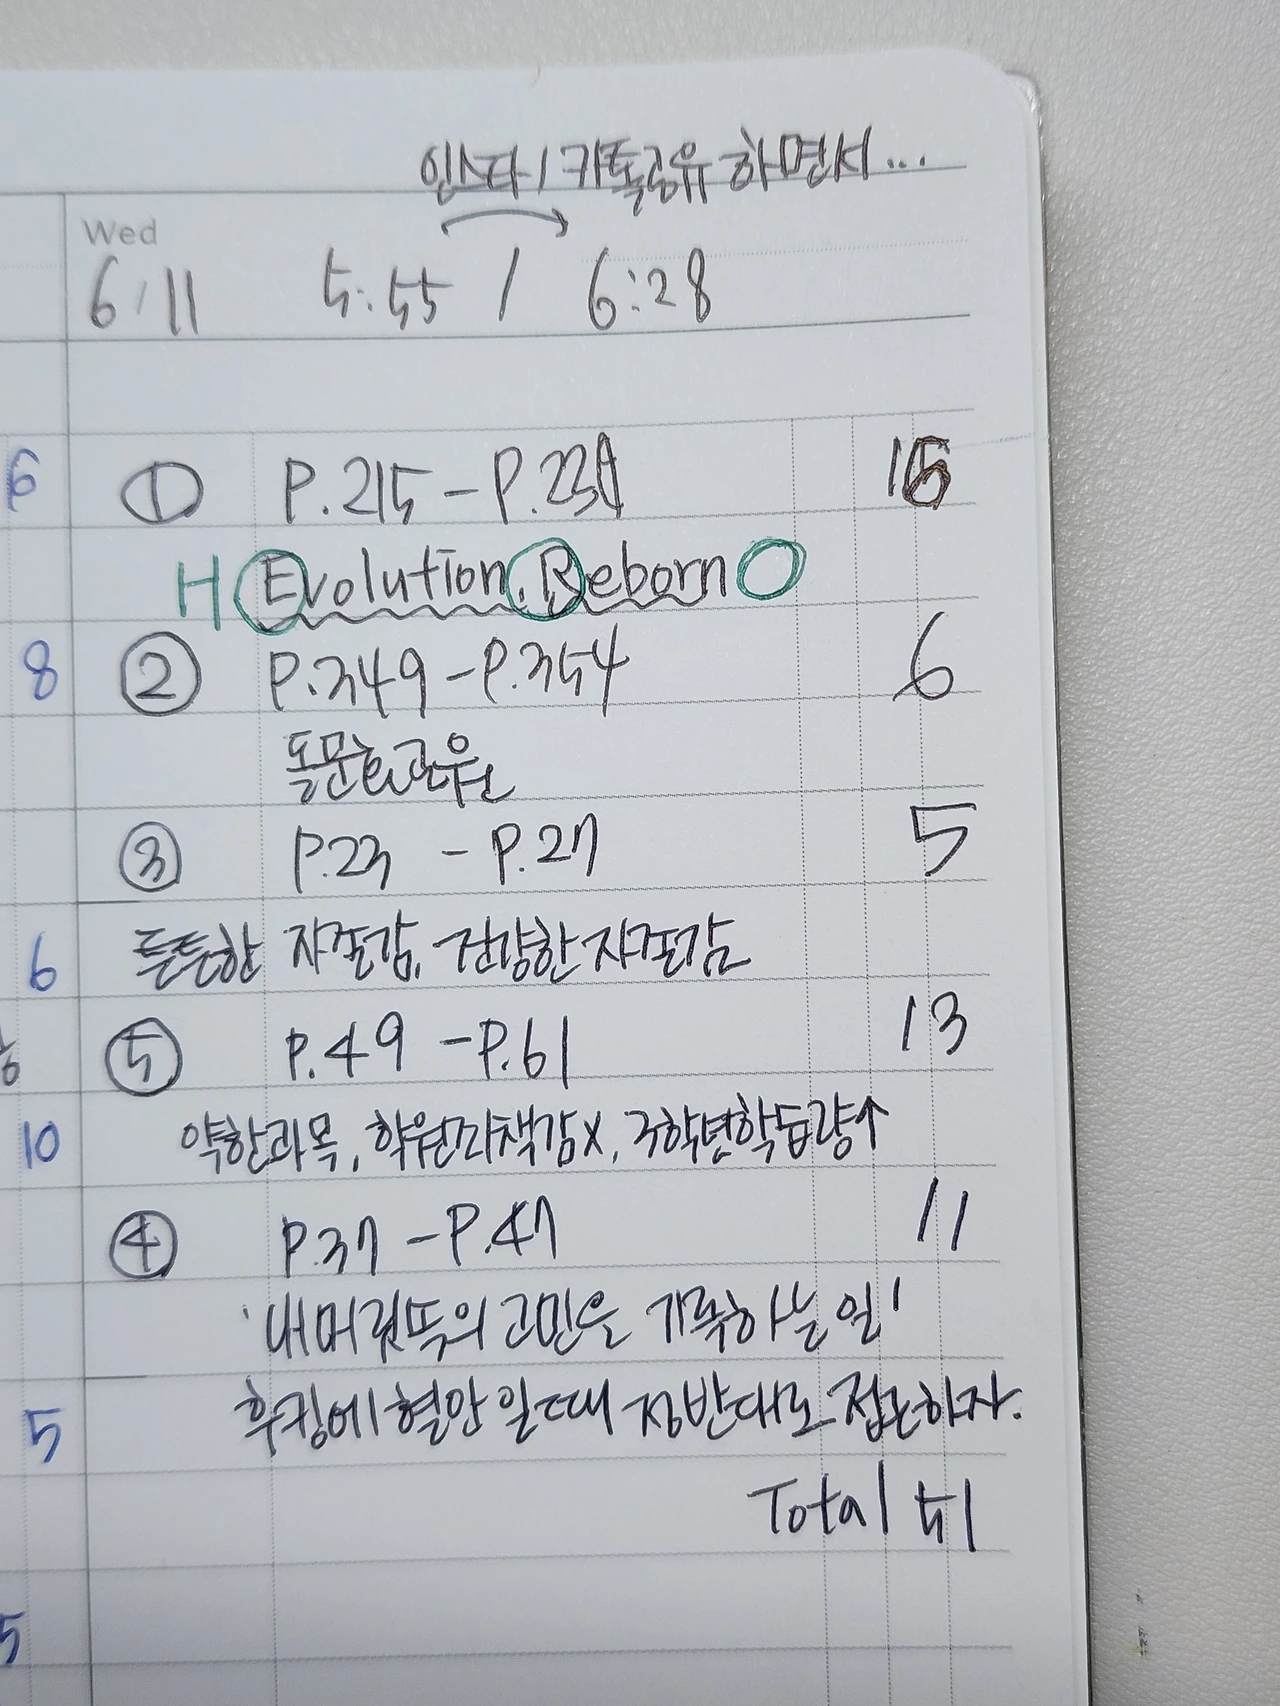 인스타 / 카톡공유 하면서...
Wed
6/11 5:55 / 6:28
6 ① P.215 - P.230 16
H Evolution. Reborn O
8 ② P.349 - P.354 6
동문효관원
③ P.23 - P.27 5
튼튼한 자존감, 건강한 자존감
6
⑤ P.49 - P.61 13
10 약한과목, 학원죄책감X, 구학년학습량↑
④ P.37 - P.47 11
'내 머릿속의 고민은 기록하는 일'
5 후킹에 혈안 일때 정반대로 접근하자.
Total 51
5